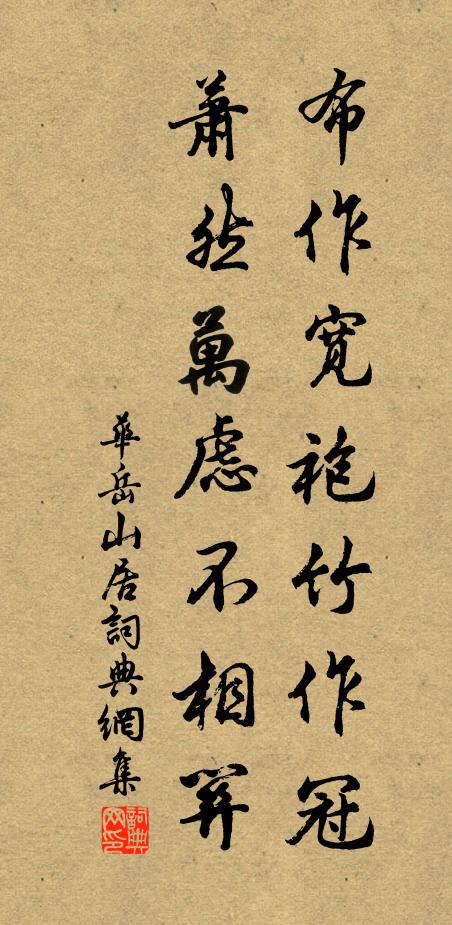 布作寬袍竹作冠
蕭然萬慮不相關
華岳山居詞典網集
詞典網印